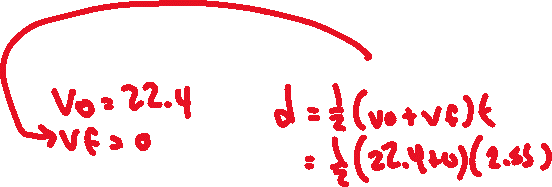 V0 = 22.4
Vf = 0
d = 1/2 (v0 + vf) t
= 1/2 (22.4+0) (2.55)